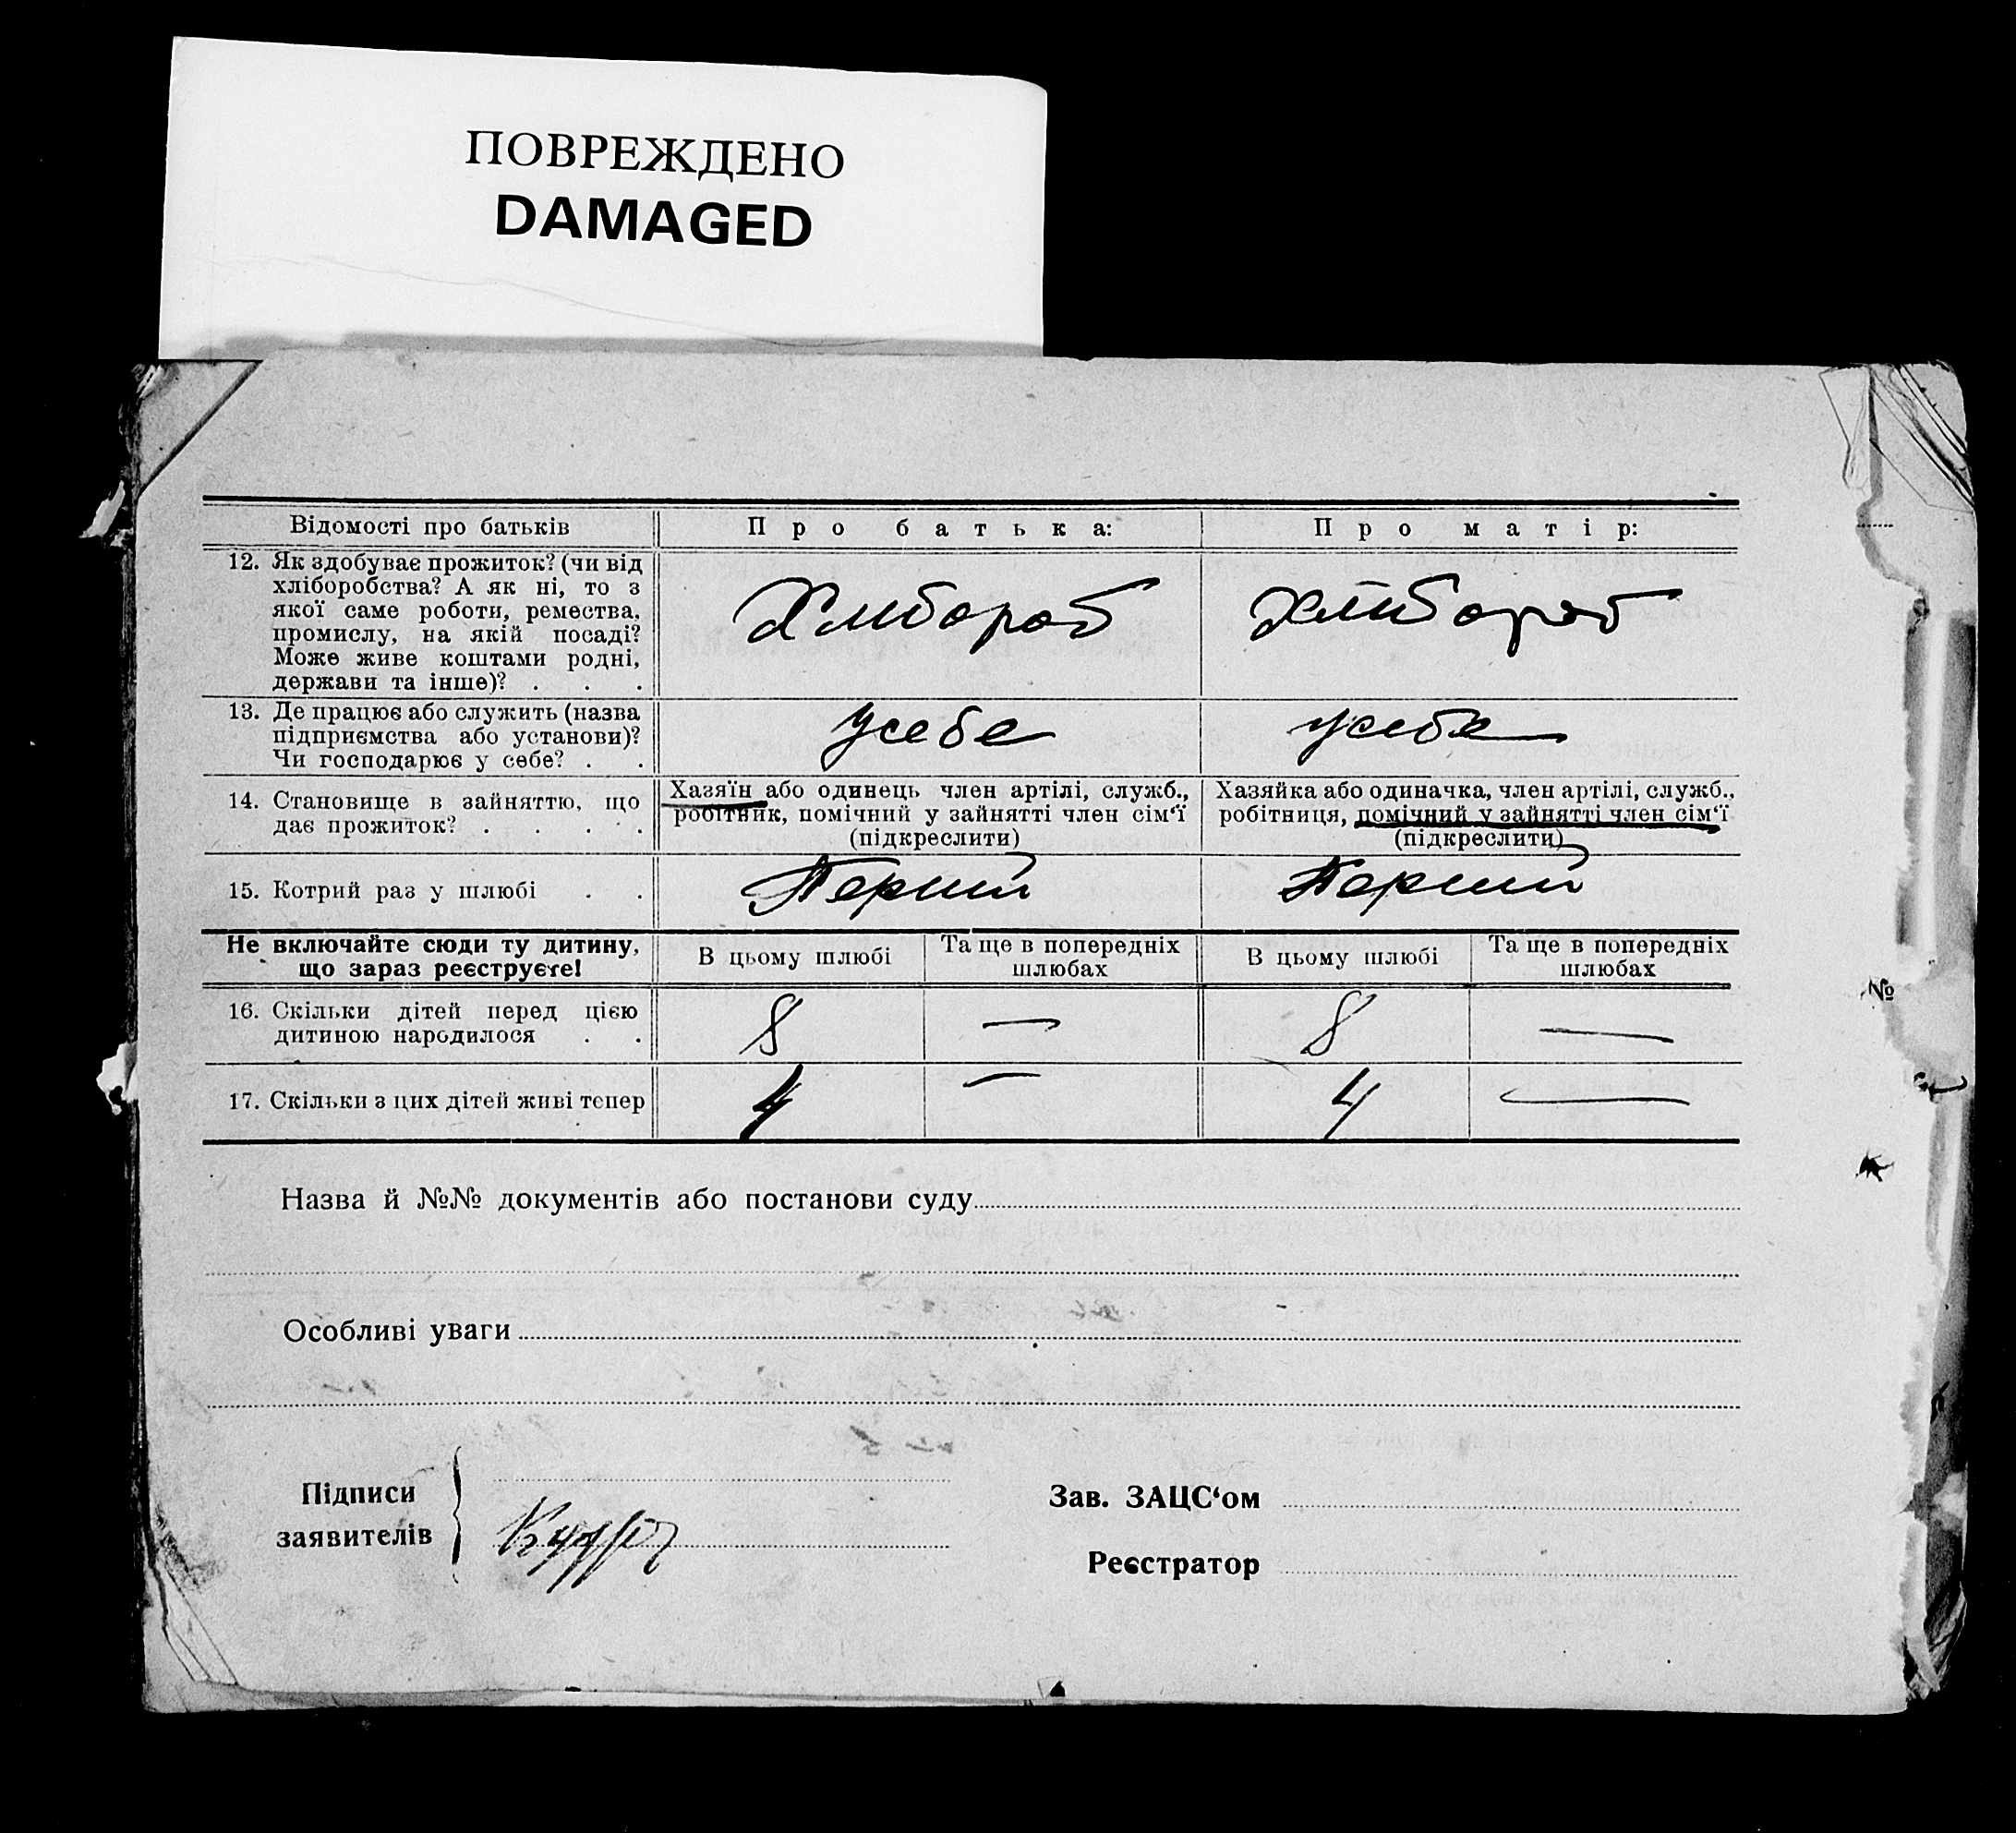 ПОВРЕЖДЕНО
DAMAGED
Відомості про батьків
Про батька:
Про матір:
12. Як здобуває прожиток? (чи від
хліборобства? А як ні, то з
якої саме роботи, ремества,
промислу, на якій посаді?
Може живе коштами родні,
держави та інше)? . . .
Хлібороб
Хлібороб
13. Де працює або служить (назва
підприємства або установи)?
Чи господарює у себе? . .
усебе
усебе
14. Становище в зайняттю, що
дає прожиток? . . . .
Хазяїн або одинець член артілі, служб.,
робітник, помічний у зайнятті член сім‘ї
(підкреслити)
Хазяйка або одиначка, член артілі, служб.,
робітниця, помічний у зайнятті член сім‘ї
(підкреслити)
15. Котрий раз у шлюбі . .
Перший
Перший
Не включайте сюди ту дитину,
що зараз реєструєте!
В цьому шлюбі
Та ще в попередніх
шлюбах
В цьому шлюбі
Та ще в попередніх
шлюбах
16. Скільки дітей перед цією
дитиною народилося . .
8
—
8
—
17. Скільки з цих дітей живі тепер
4
—
4
—
№
Назва й №№ документів або постанови суду
Особливі уваги
Підписи
заявителів
Зав. ЗАЦС‘ом
Реєстратор